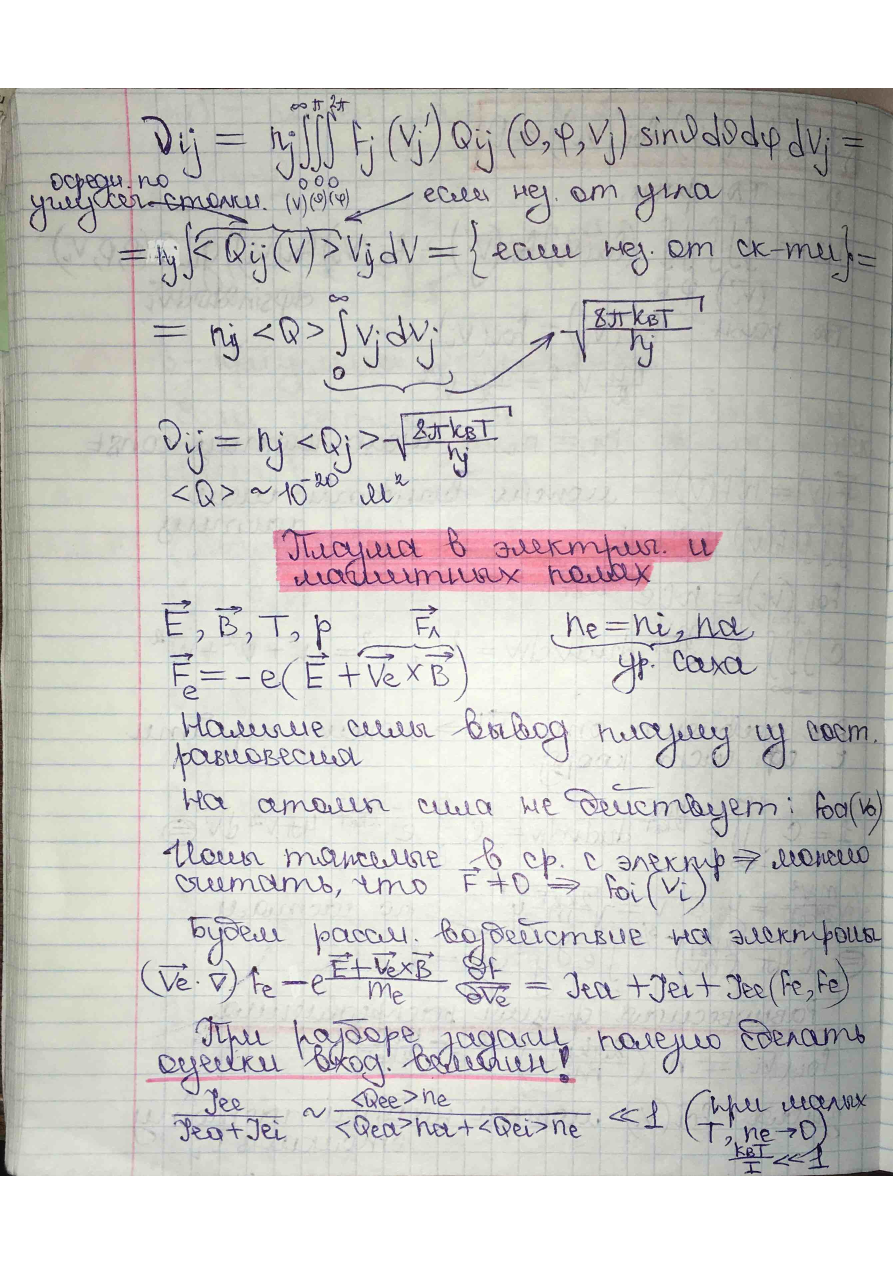 ∞ π 2π
νij = nj ∫∫∫ fj (Vj') Qij (θ, φ, Vj) sinθ dθ dφ dVj =
0 0 0
(V)(θ)(φ)
осредн. по
углу сеч. столкн.
если нез. от угла
= nj ∫ <Qij(V)> Vj dV = { если нез. от ск-ти } =
= nj <Q> ∫₀^∞ Vj dVj → √(8πkвT / nj)
νij = nj <Qj> √(8πkвT / nj)
<Q> ~ 10⁻²⁰ м²
Плазма в электрич. и
магнитных полях
E⃗, B⃗, T, p
F⃗л
ne = ni, na
ур. Саха
F⃗e = -e(E⃗ + V⃗e × B⃗)
Наличие силы вывод плазму из сост.
равновесия
На атомы сила не действует: foa(Va)
Ионы тяжелые в ср. с электр ⇒ можно
считать, что F⃗ ≠ 0 ⇒ foi(Vi)
Будем рассм. воздействие на электроны
(V⃗e · ∇) fe - e (E⃗ + V⃗e × B⃗)/me ∂f/∂V⃗e = Jea + Jei + Jee (fe, fe)
При разборе задачи полезно сделать
оценки вход. величин!
Jee / (Jea + Jei) ~ <Qee> ne / (<Qea> na + <Qei> ne) ≪ 1 (при малых
T, ne → 0)
kвT / I ≪ 1